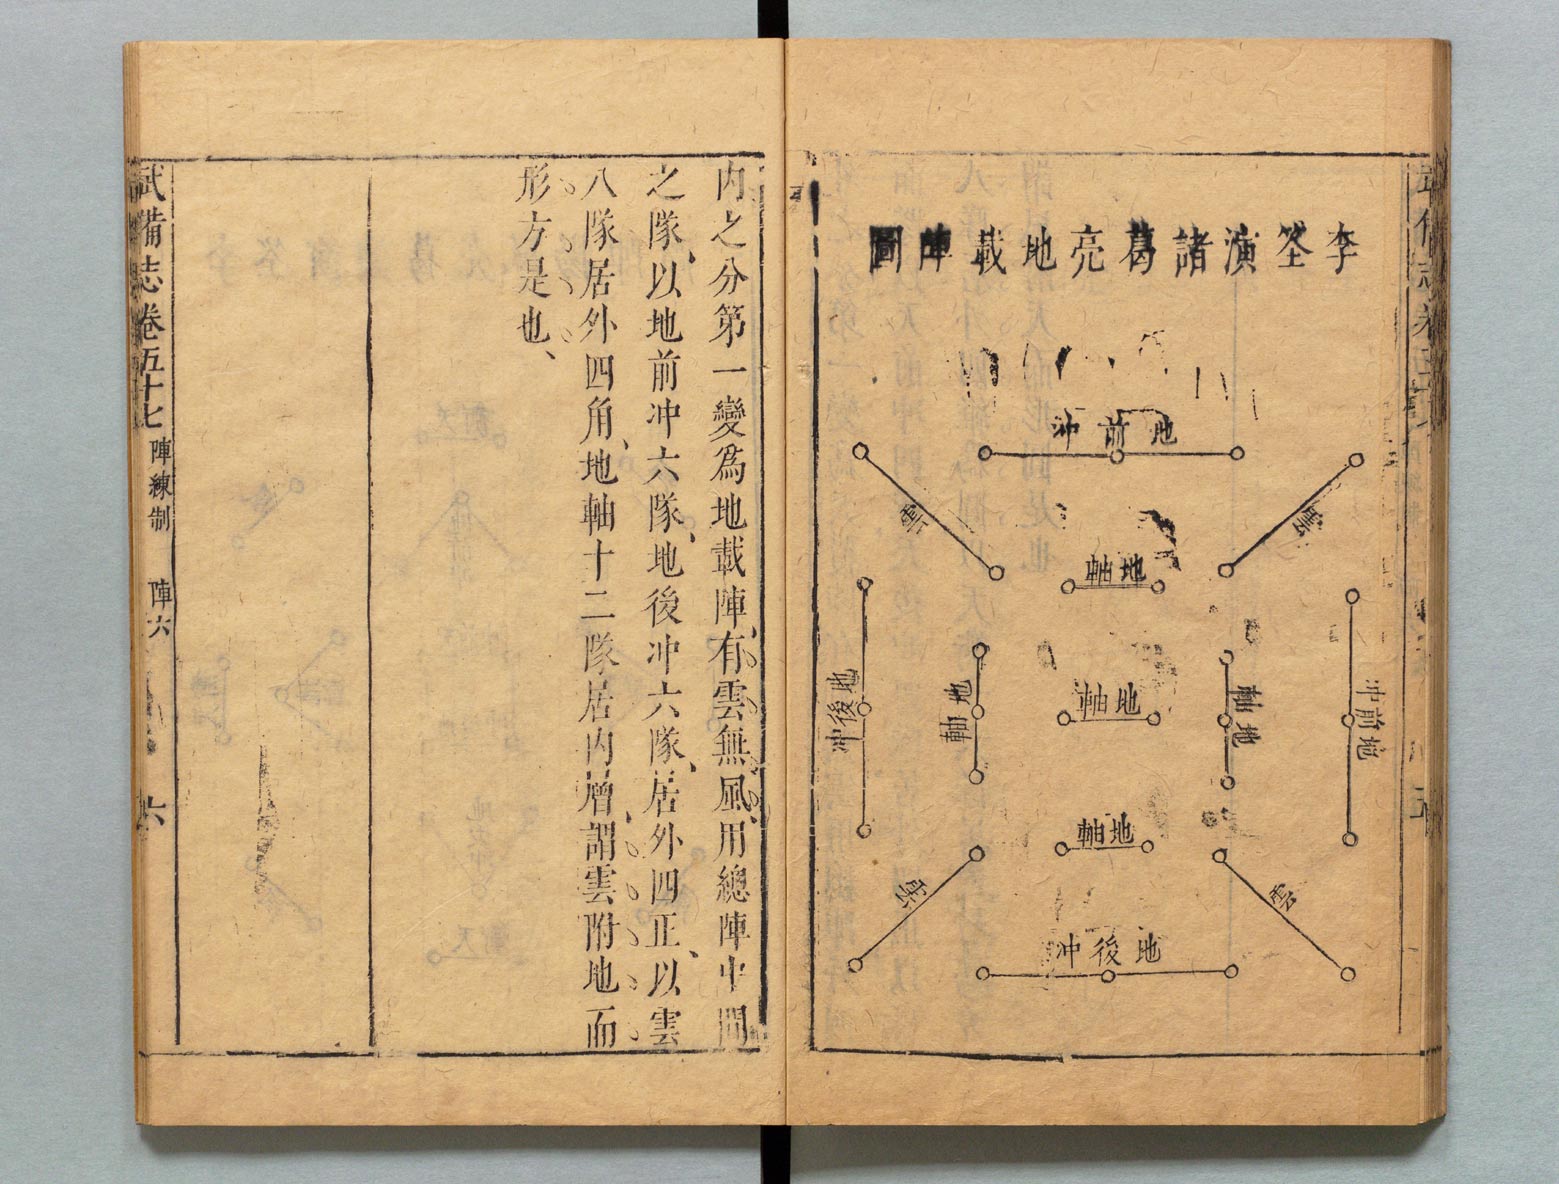 李筌演諸葛亮地載陣圖
地前冲
雲
雲
地軸
地前冲
地軸
地軸
地軸
地後冲
地軸
雲
雲
地後冲
五
内之分第一變爲地載陣、有雲無風、用總陣中間
之隊、以地前冲六隊、地後冲六隊、居外四正、以雲
八隊居外四角、地軸十二隊居内層、謂雲附地而
形方是也、
武備志卷五十七 陣練制 陣六 六